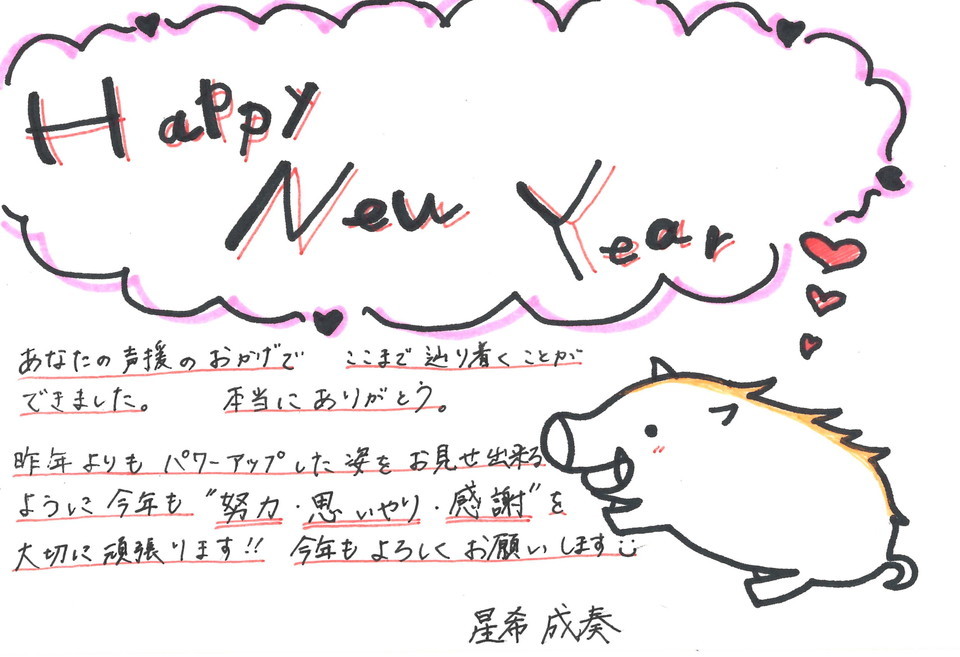 Happy
New Year
あなたの声援のおかげで ここまで辿り着くことが
できました。 本当にありがとう。
昨年よりもパワーアップした姿をお見せ出来る
ように今年も"努力・思いやり・感謝"を
大切に頑張ります!! 今年もよろしくお願いします
星希成奏